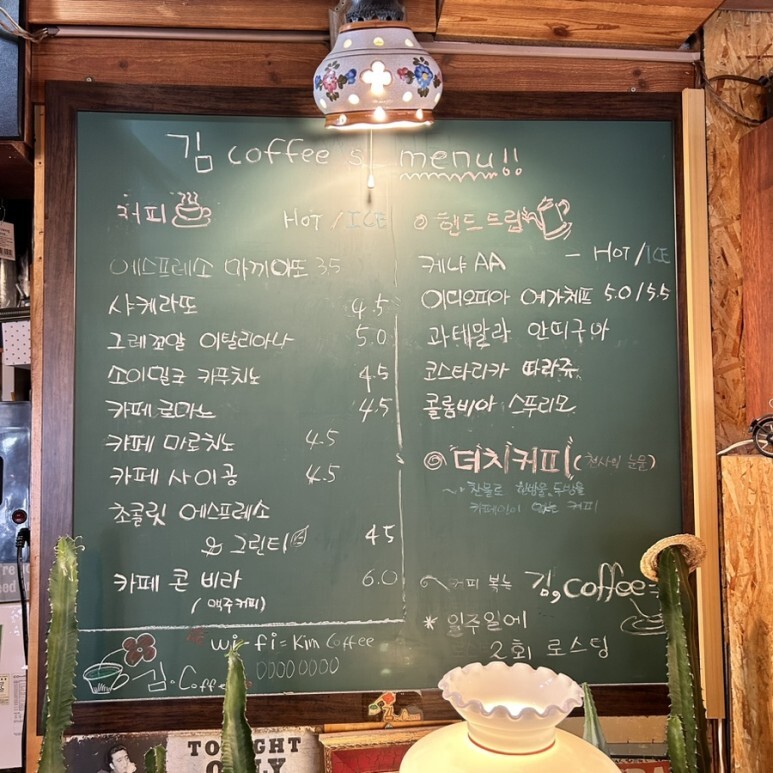 김 coffee's menu!!
커피
HOT / ICE
에스프레소 마끼아또 3.5
샤케라또 4.5
그레꼬알 이탈리아나 5.0
소이밀크 카푸치노 4.5
카페 로마노 4.5
카페 마로치노 4.5
카페 사이공 4.5
초콜릿 에스프레소
& 그린티 4.5
카페 콘 비라 6.0
(맥주커피)
wi-fi = Kim Coffee
00000000
김.Coffee
◎ 핸드드립
케냐 AA - HOT / ICE
이디오피아 예가체프 5.0 / 5.5
과테말라 안띠구아
코스타리카 따라쥬
콜롬비아 스푸리모
◎ "더치커피" (천사의 눈물)
~ 찬물로 한방울, 두방울
카페인이 없는 커피
커피 볶는 김, coffee
* 일주일에
2회 로스팅
TONIGHT
ONLY